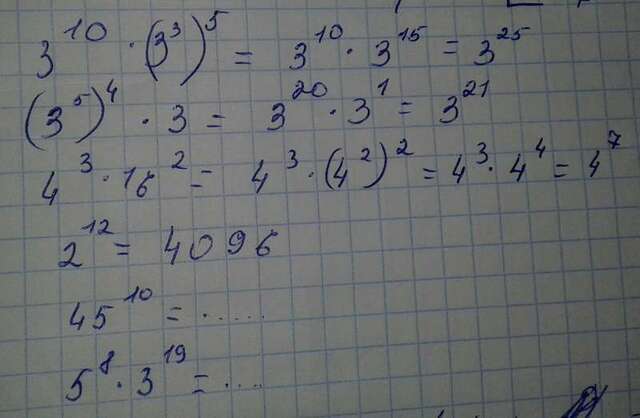 3¹⁰ · (3³)⁵ = 3¹⁰ · 3¹⁵ = 3²⁵
(3⁵)⁴ · 3 = 3²⁰ · 3¹ = 3²¹
4³ · 16² = 4³ · (4²)² = 4³ · 4⁴ = 4⁷
2¹² = 4096
45¹⁰ = ......
5⁸ · 3¹⁹ = ....